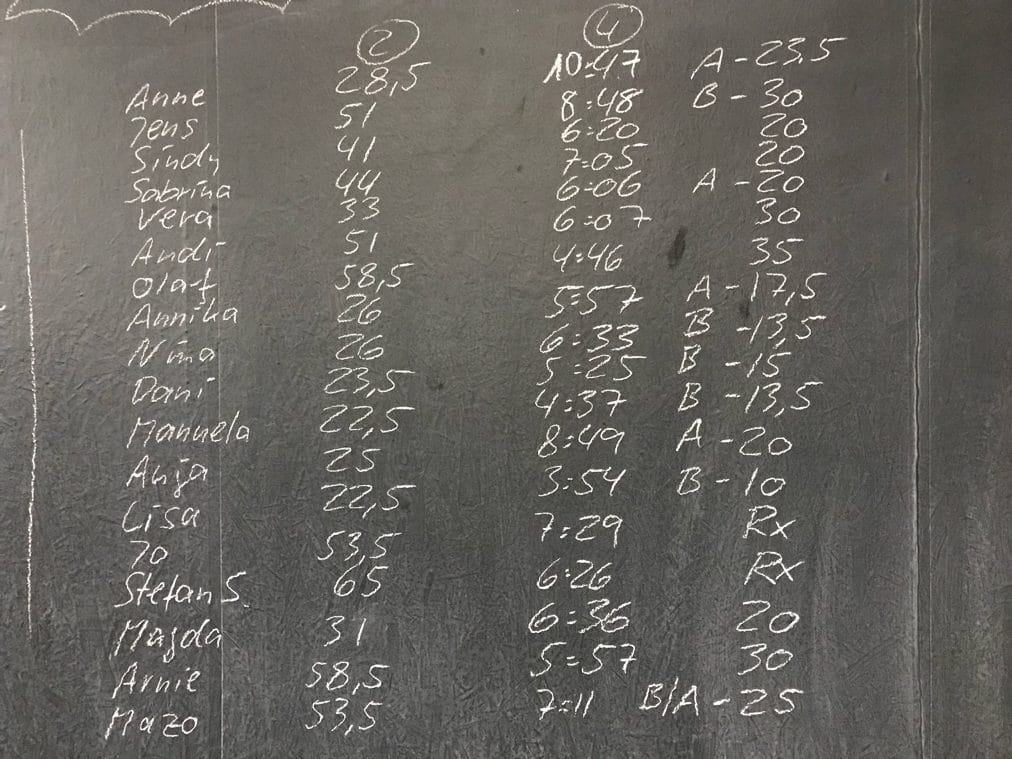 2 4
Anne 28,5 10:47 A - 23,5
Jens 51 8:48 B - 30
Sindy 41 6:20 20
Sabrina 44 7:05 20
Vera 33 6:06 A - 20
Andi 51 6:07 30
Olaf 58,5 4:46 35
Annika 26 5:57 A - 17,5
Nina 26 6:33 B - 13,5
Dani 23,5 5:25 B - 15
Manuela 22,5 4:37 B - 13,5
Anja 25 8:49 A - 20
Lisa 22,5 3:54 B - 10
Jo 53,5 7:29 Rx
Stefan S. 65 6:26 Rx
Magda 31 6:36 20
Arnie 58,5 5:57 30
Mazo 53,5 7:11 B/A - 25